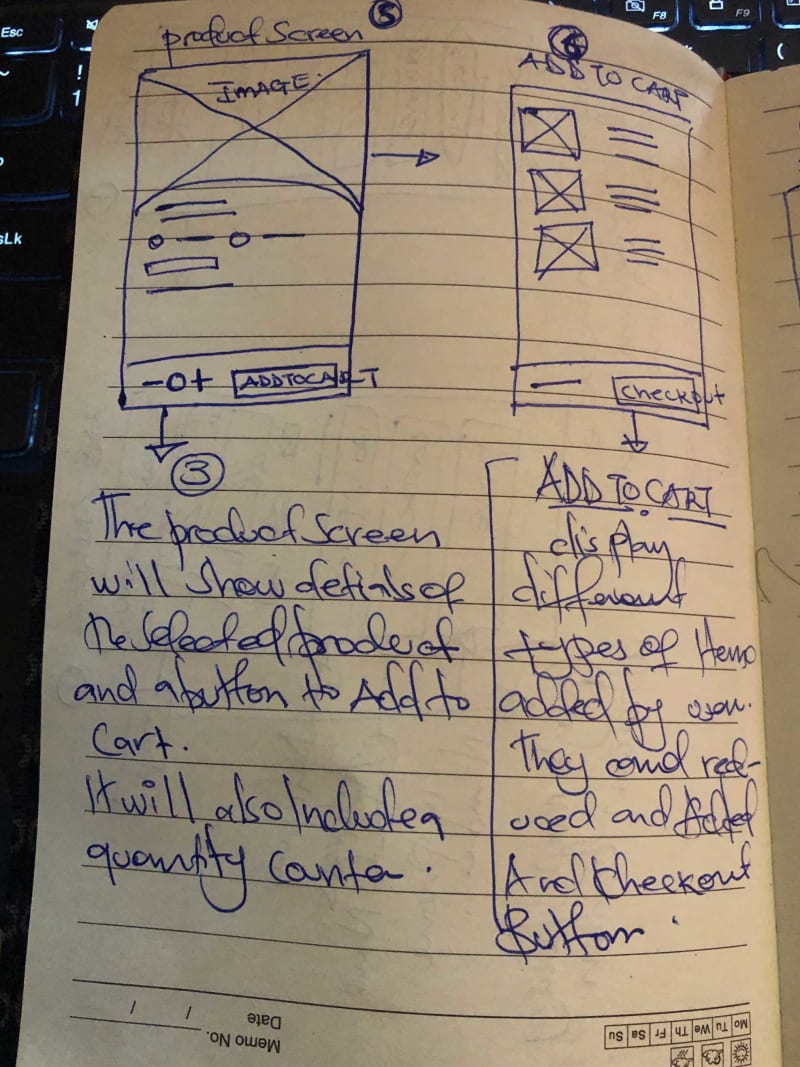 Esc
F8
F9
!
1
~
(
sLk
product Screen
5
IMAGE.
-O+ ADD TO CART
6
ADD TO CART
checkout
3
The product Screen
will show detials of
the selected product
and a button to Add to
Cart.
It will also Include a
quantity
ADD TO CART
display
different
types of Items
added by user.
They could red-
uced and Added
And checkout
Button.
Memo No.
Date / /
Mo Tu We Th Fr Sa Su